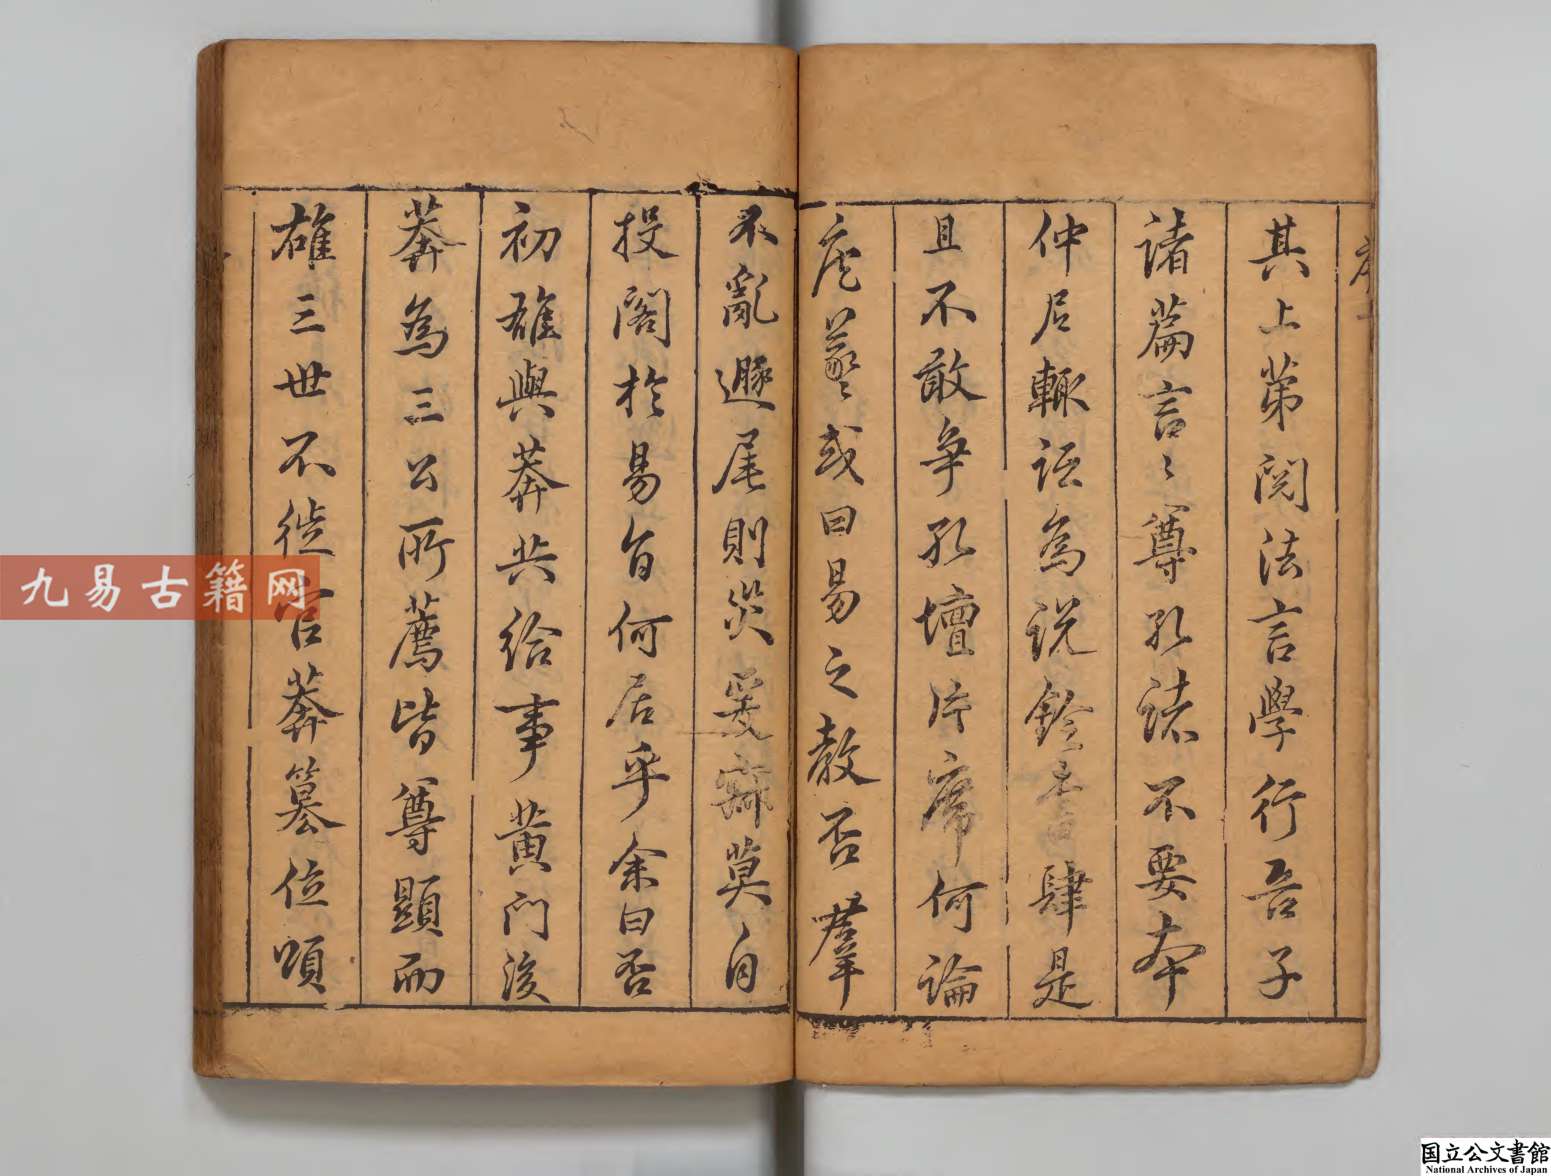 其上第閱法言學行吾子
諸篇言〻尊孔諸不要本
仲尼輙詆為說鈴書肆是
且不敢爭孔壇片席何論
虙羲〻或曰易之教否羣
不亂遯尾則災爰寂莫自
投閣於易旨何居乎余曰否
初雄與莽共給事黄門後
莽為三公所薦皆尊顯而
雄三世不徙官莽篡位頌
九易古籍网
国立公文書館
National Archives of Japan